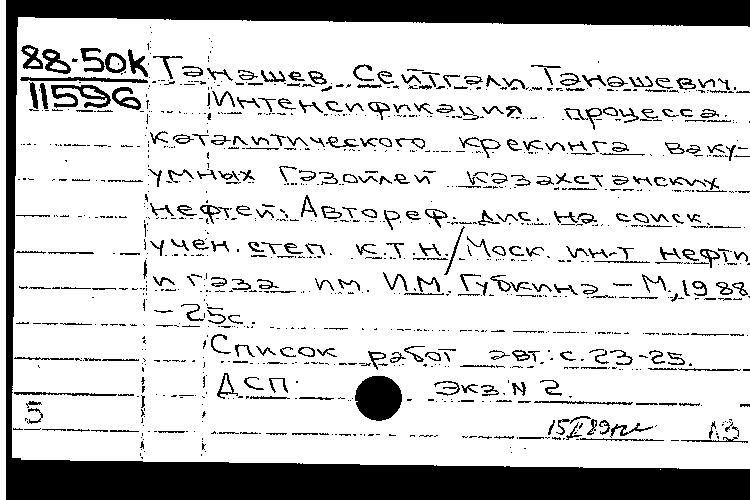 88-50К Танашев, Сейтгали Танашевич.
11596 Интенсификация процесса
каталитического крекинга ваку-
умных газойлей казахстанских
нефтей: Автореф. дис. на соиск.
учен. степ. к.т.н./Моск. ин-т нефти
и газа им. И.М. Губкина – М, 1988
– 25с.
Список работ авт.: с. 23-25.
ДСП. Экз. N 2.
5